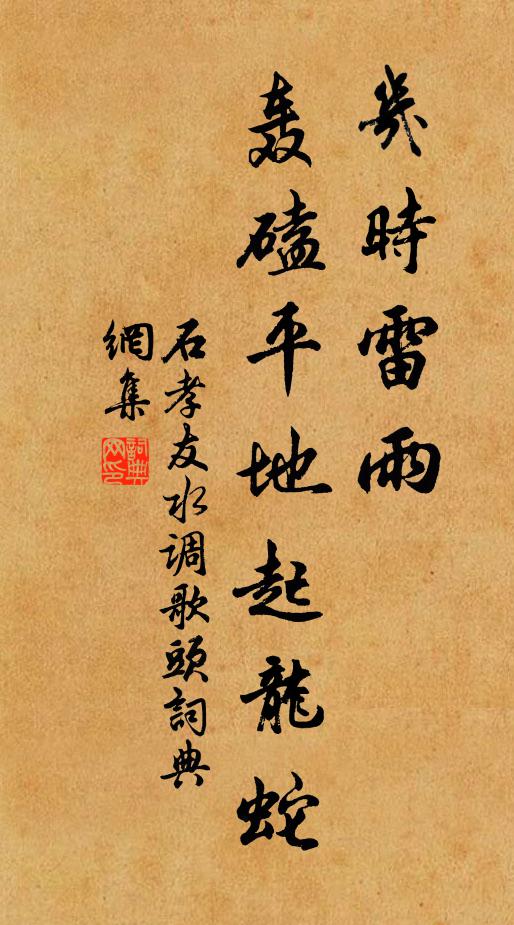 幾時雷雨
轰磕平地起龍蛇
石孝友水调歌頭詞典
網集
詞典
网印